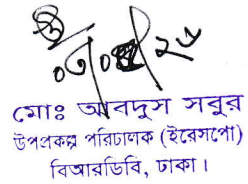 মোঃ আবদুস সবুর
উপপ্রকল্প পরিচালক (ইরেসপো)
বিআরডিবি, ঢাকা।